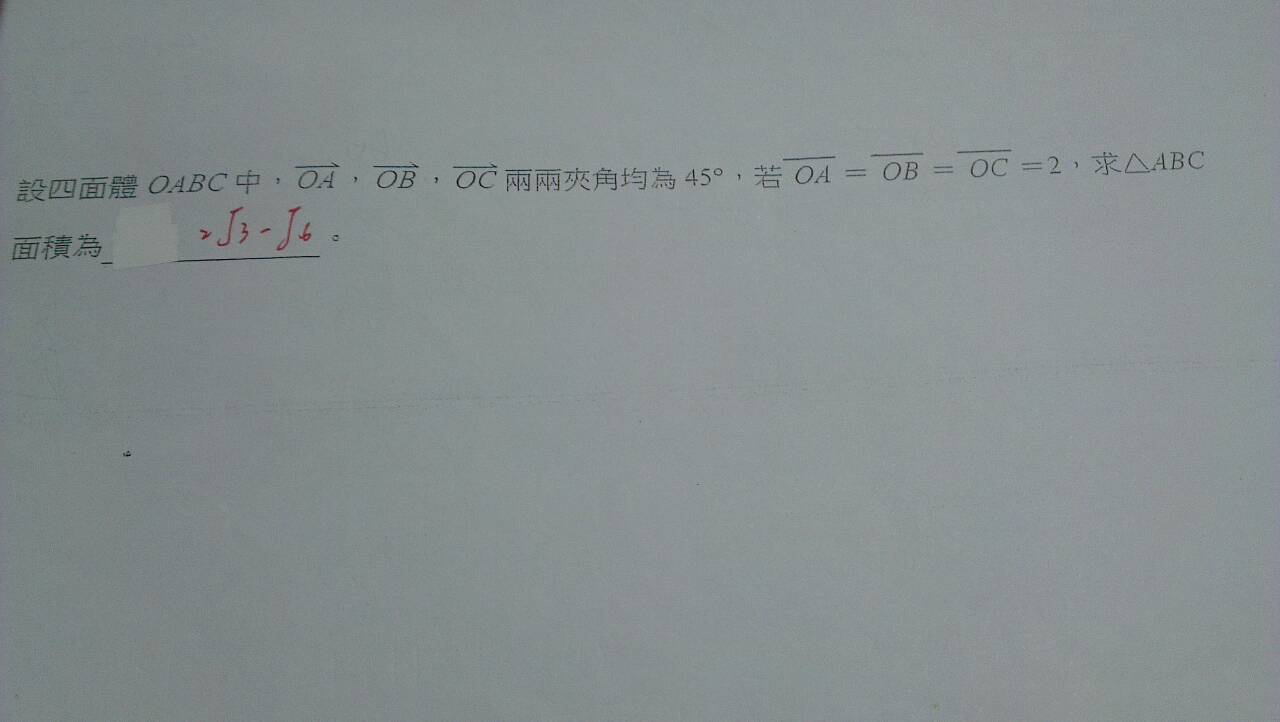 設四面體 OABC 中，$\overrightarrow{OA}$，$\overrightarrow{OB}$，$\overrightarrow{OC}$ 兩兩夾角均為 45°，若 $\overline{OA}$ = $\overline{OB}$ = $\overline{OC}$ =2，求△ABC
面積為 2√3-√6 。